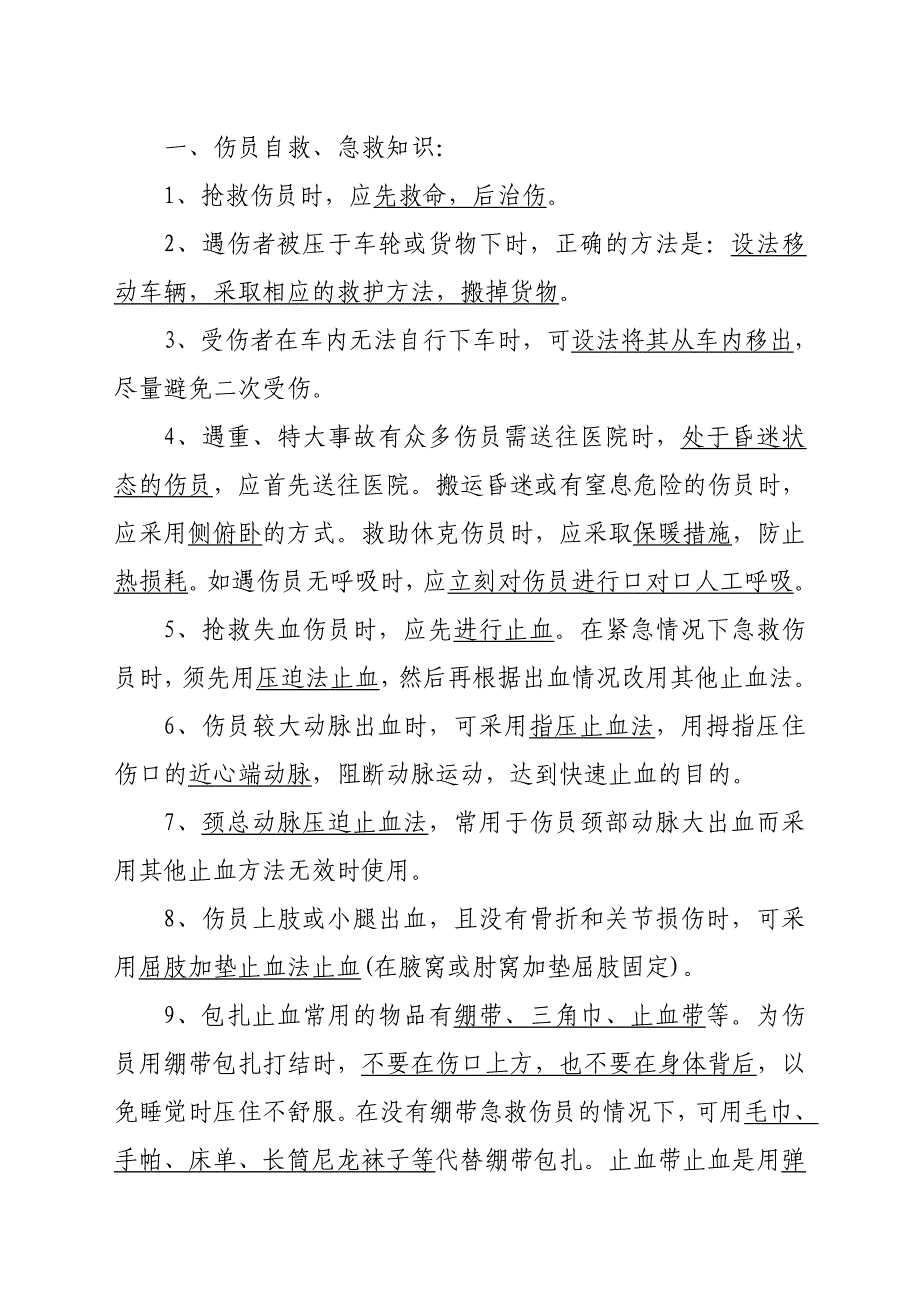 一、伤员自救、急救知识：
1、抢救伤员时，应先救命，后治伤。
2、遇伤者被压于车轮或货物下时，正确的方法是：设法移
动车辆，采取相应的救护方法，搬掉货物。
3、受伤者在车内无法自行下车时，可设法将其从车内移出，
尽量避免二次受伤。
4、遇重、特大事故有众多伤员需送往医院时，处于昏迷状
态的伤员，应首先送往医院。搬运昏迷或有窒息危险的伤员时，
应采用侧俯卧的方式。救助休克伤员时，应采取保暖措施，防止
热损耗。如遇伤员无呼吸时，应立刻对伤员进行口对口人工呼吸。
5、抢救失血伤员时，应先进行止血。在紧急情况下急救伤
员时，须先用压迫法止血，然后再根据出血情况改用其他止血法。
6、伤员较大动脉出血时，可采用指压止血法，用拇指压住
伤口的近心端动脉，阻断动脉运动，达到快速止血的目的。
7、颈总动脉压迫止血法，常用于伤员颈部动脉大出血而采
用其他止血方法无效时使用。
8、伤员上肢或小腿出血，且没有骨折和关节损伤时，可采
用屈肢加垫止血法止血(在腋窝或肘窝加垫屈肢固定)。
9、包扎止血常用的物品有绷带、三角巾、止血带等。为伤
员用绷带包扎打结时，不要在伤口上方，也不要在身体背后，以
免睡觉时压住不舒服。在没有绷带急救伤员的情况下，可用毛巾、
手帕、床单、长筒尼龙袜子等代替绷带包扎。止血带止血是用弹